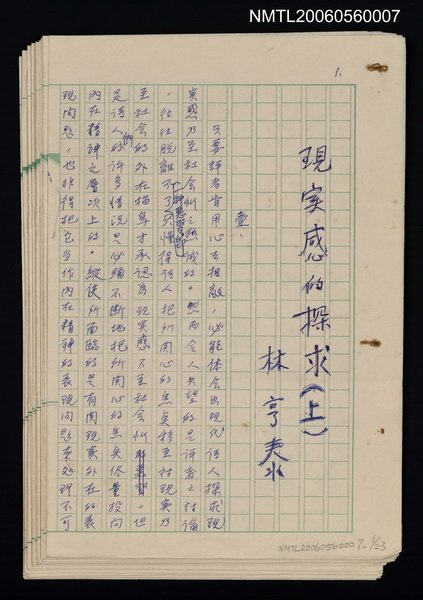 NMTL20060560007
1.
現实感的探求(上)
林亨泰
壹、
只要評者肯用心去推敲,必能体会出現代詩人探求現
实感乃至社会性之熱誠的。然而令人失望的是評者之討論
,往往脫離不了只懂得詩人把所関心的焦点移至对現实乃
至社会的外在描写才承認為現实感乃至社会性。但
是詩人們的许多情況是必須不断地把所関心的焦点尽量投向
內在精神之層次上的。縱使所面臨的是有関現实外在的表
現问題,也非得把它当作內在精神的表現问題來处理不可
NMTL20060560007. 1/23